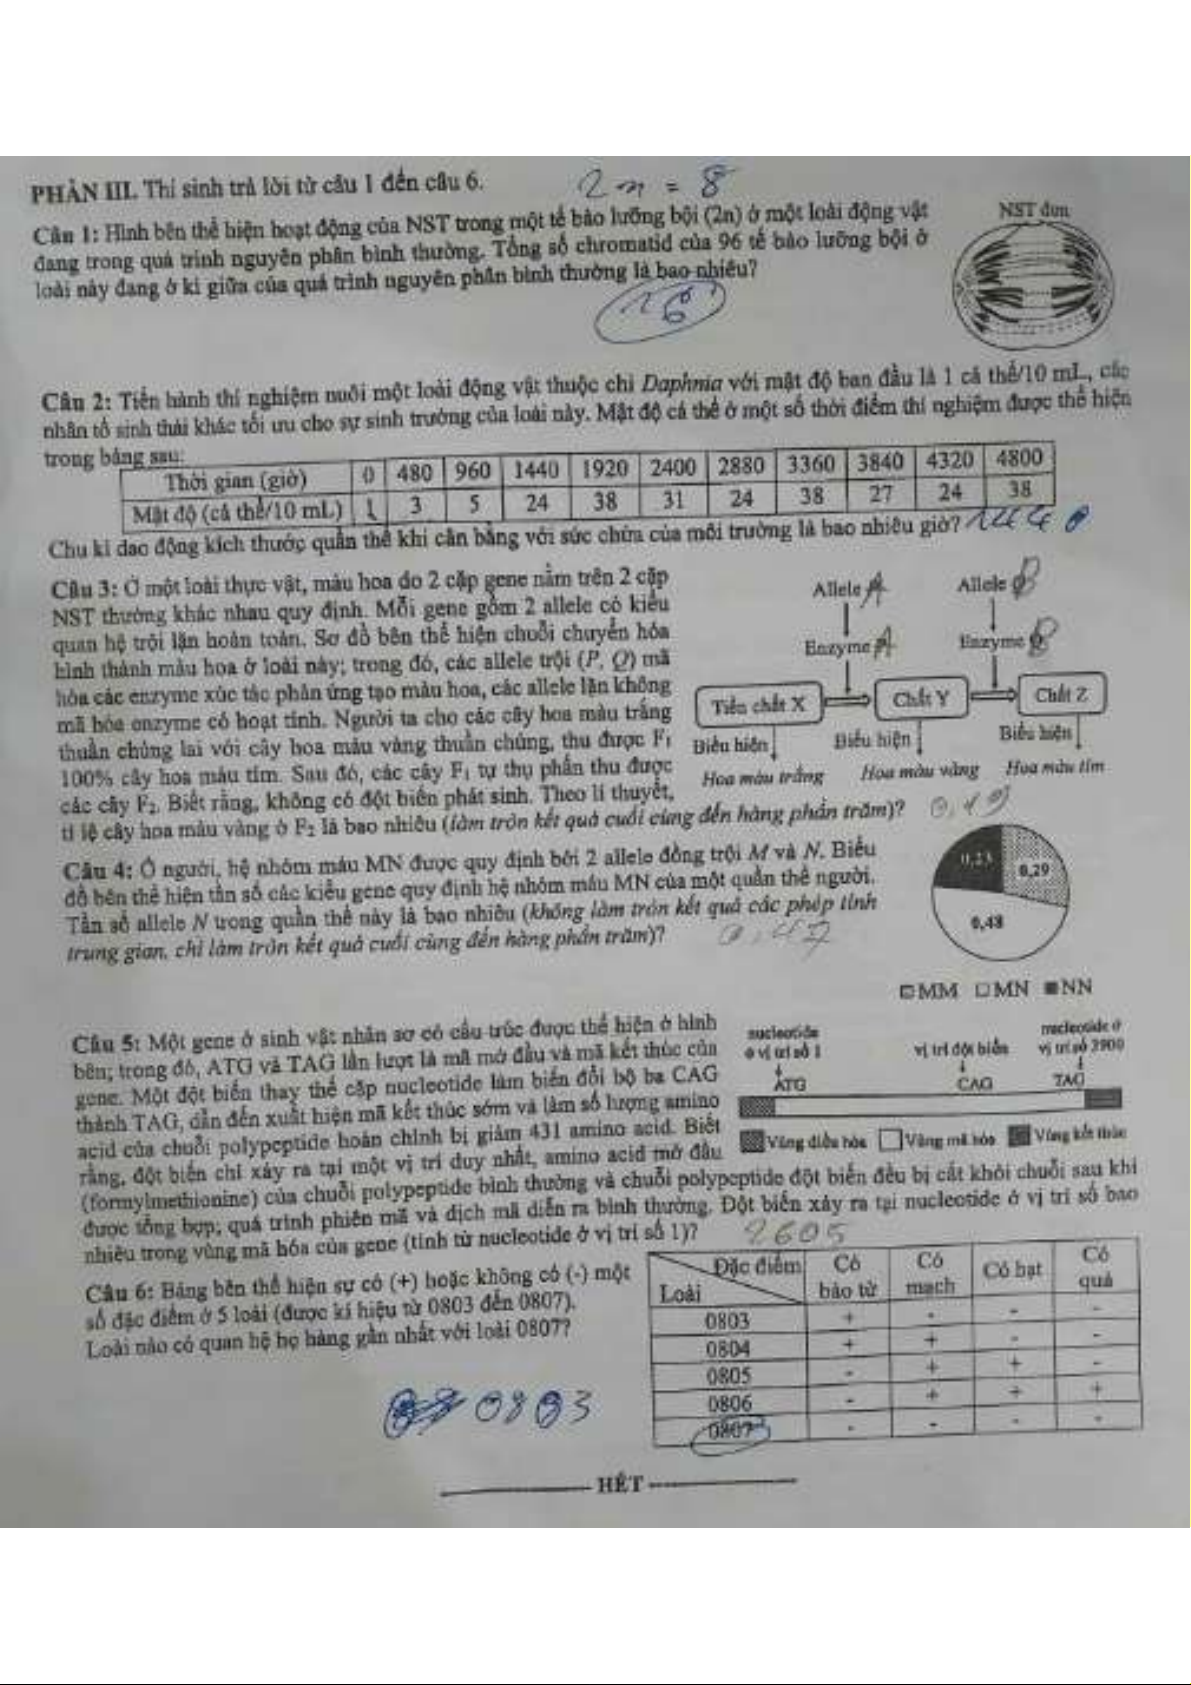 PHẦN III. Thí sinh trả lời từ câu 1 đến câu 6.
2n = 8
Câu 1: Hình bên thể hiện hoạt động của NST trong một tế bào lưỡng bội (2n) ở một loài động vật
đang trong quá trình nguyên phân bình thường. Tổng số chromatid của 96 tế bào lưỡng bội ở
loài này đang ở kì giữa của quá trình nguyên phân bình thường là bao nhiêu?
NST đơn
Câu 2: Tiến hành thí nghiệm nuôi một loài động vật thuộc chi Daphnia với mật độ ban đầu là 1 cá thể/10 mL, các
nhân tố sinh thái khác tối ưu cho sự sinh trưởng của loài này. Mật độ cá thể ở một số thời điểm thí nghiệm được thể hiện
trong bảng sau:
Thời gian (giờ) 0 480 960 1440 1920 2400 2880 3360 3840 4320 4800
Mật độ (cá thể/10 mL) 1 3 5 24 38 31 24 38 27 24 38
Chu kì dao động kích thước quần thể khi cân bằng với sức chứa của môi trường là bao nhiêu giờ? 1440
Câu 3: Ở một loài thực vật, màu hoa do 2 cặp gene nằm trên 2 cặp
NST thường khác nhau quy định. Mỗi gene gồm 2 allele có kiểu
quan hệ trội lặn hoàn toàn. Sơ đồ bên thể hiện chuỗi chuyển hóa
hình thành màu hoa ở loài này; trong đó, các allele trội (P, Q) mã
hóa các enzyme xúc tác phản ứng tạo màu hoa, các allele lặn không
mã hóa enzyme có hoạt tính. Người ta cho các cây hoa màu trắng
thuần chủng lai với cây hoa màu vàng thuần chủng, thu được F1
100% cây hoa màu tím. Sau đó, các cây F1 tự thụ phấn thu được
các cây F2. Biết rằng, không có đột biến phát sinh. Theo lí thuyết,
tỉ lệ cây hoa màu vàng ở F2 là bao nhiêu (làm tròn kết quả cuối cùng đến hàng phần trăm)? 0,19
Allele A Allele B
Enzyme A Enzyme B
Tiền chất X Chất Y Chất Z
Biểu hiện Biểu hiện Biểu hiện
Hoa màu trắng Hoa màu vàng Hoa màu tím
Câu 4: Ở người, hệ nhóm máu MN được quy định bởi 2 allele đồng trội M và N. Biểu
đồ bên thể hiện tần số các kiểu gene quy định hệ nhóm máu MN của một quần thể người.
Tần số allele N trong quần thể này là bao nhiêu (không làm tròn kết quả các phép tính
trung gian, chỉ làm tròn kết quả cuối cùng đến hàng phần trăm)? 0,47
0,23 0,29
0,48
MM MN NN
Câu 5: Một gene ở sinh vật nhân sơ có cấu trúc được thể hiện ở hình
bên; trong đó, ATG và TAG lần lượt là mã mở đầu và mã kết thúc của
gene. Một đột biến thay thế cặp nucleotide làm biến đổi bộ ba CAG
thành TAG, dẫn đến xuất hiện mã kết thúc sớm và làm số lượng amino
acid của chuỗi polypeptide hoàn chỉnh bị giảm 431 amino acid. Biết
rằng, đột biến chỉ xảy ra tại một vị trí duy nhất, amino acid mở đầu
(formylmethionine) của chuỗi polypeptide bình thường và chuỗi polypeptide đột biến đều bị cắt khỏi chuỗi sau khi
được tổng hợp; quá trình phiên mã và dịch mã diễn ra bình thường. Đột biến xảy ra tại nucleotide ở vị trí số bao
nhiêu trong vùng mã hóa của gene (tính từ nucleotide ở vị trí số 1)? 2605
nucleotide
ở vị trí số 1
vị trí đột biến
nucleotide ở
vị trí số 3900
ATG CAG TAG
Vùng điều hòa Vùng mã hóa Vùng kết thúc
Câu 6: Bảng bên thể hiện sự có (+) hoặc không có (-) một
số đặc điểm ở 5 loài (được kí hiệu từ 0803 đến 0807).
Loài nào có quan hệ họ hàng gần nhất với loài 0807?
0803
Đặc điểm Có bào tử Có mạch Có hạt Có quả
Loài
0803 + - - -
0804 + + - -
0805 - + + -
0806 - + + +
0807 - - - -
HẾT